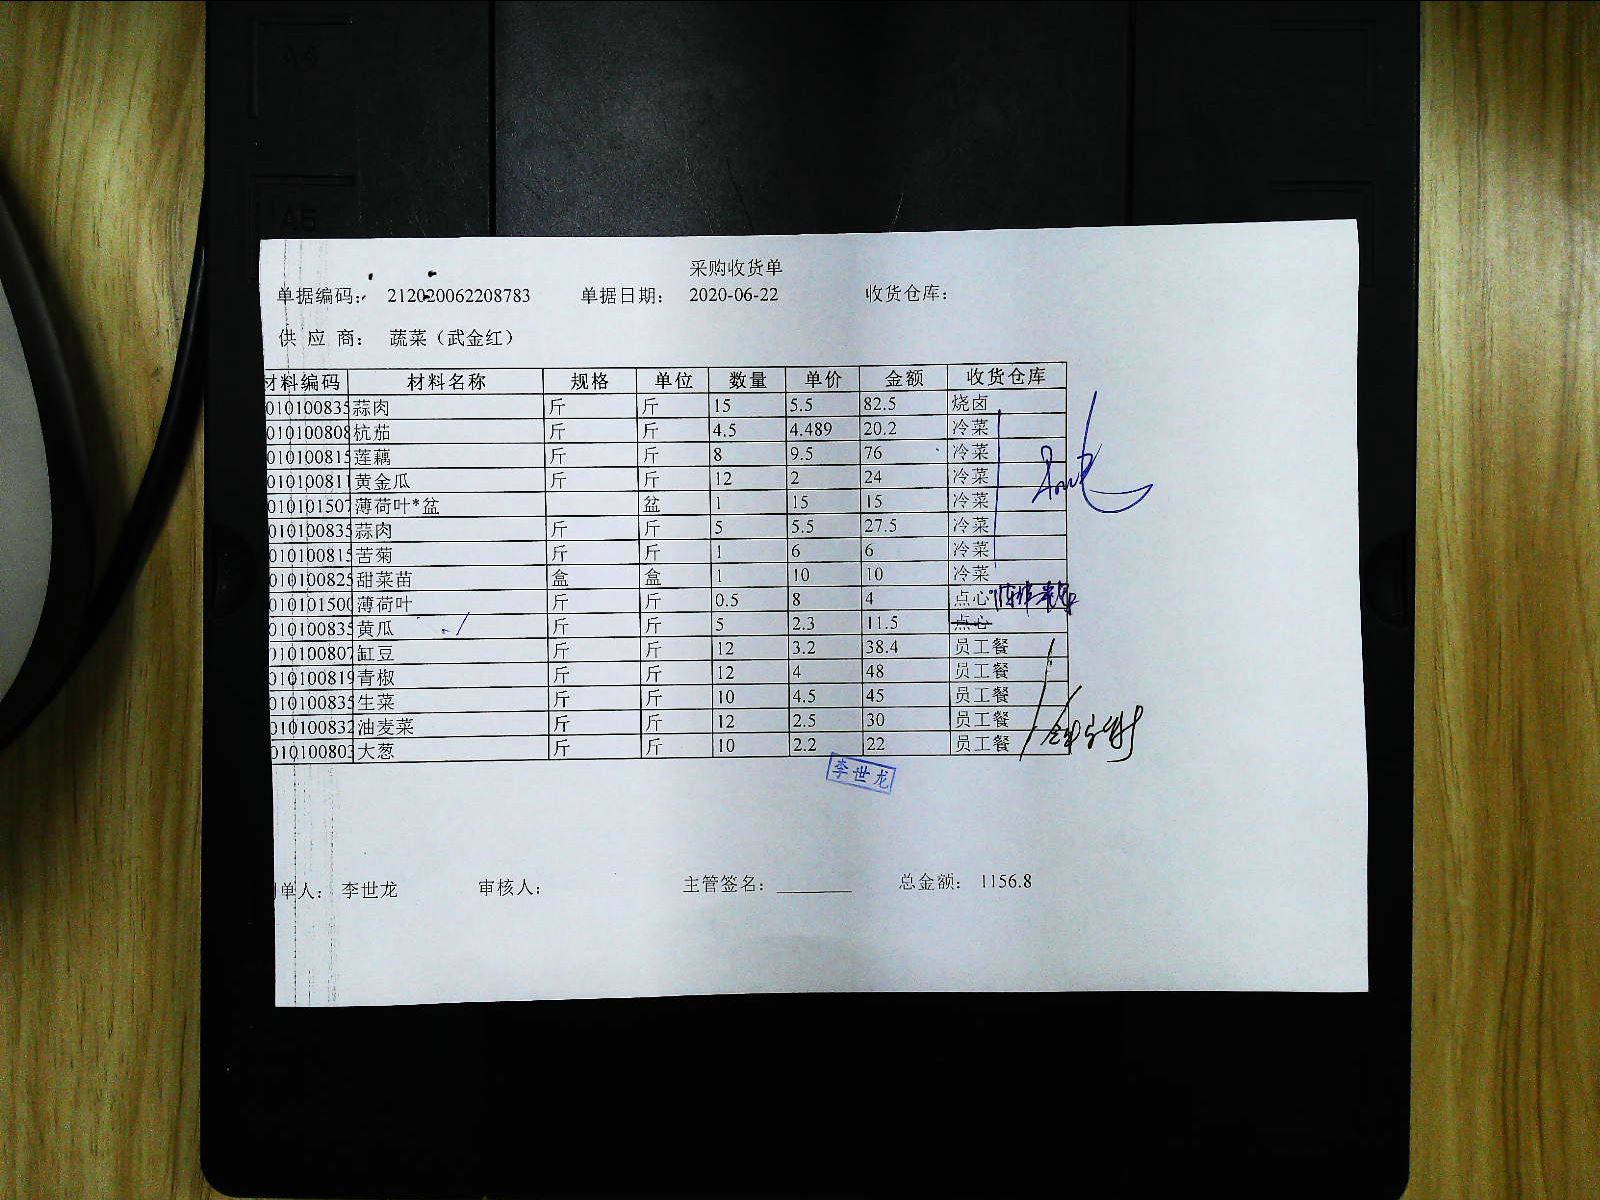 A4
A5
采购收货单
单据编码: 212020062208783 单据日期: 2020-06-22 收货仓库:
供 应 商: 蔬菜（武金红）
材料编码 材料名称 规格 单位 数量 单价 金额 收货仓库
010100835 蒜肉 斤 斤 15 5.5 82.5 烧卤
010100808 杭茄 斤 斤 4.5 4.489 20.2 冷菜
010100815 莲藕 斤 斤 8 9.5 76 冷菜
010100811 黄金瓜 斤 斤 12 2 24 冷菜
010101507 薄荷叶*盆 盆 1 15 15 冷菜
010100835 蒜肉 斤 斤 5 5.5 27.5 冷菜
010100815 苦菊 斤 斤 1 6 6 冷菜
010100825 甜菜苗 盒 盒 1 10 10 冷菜
010101500 薄荷叶 斤 斤 0.5 8 4 点心
010100835 黄瓜 斤 斤 5 2.3 11.5 点心
010100807 缸豆 斤 斤 12 3.2 38.4 员工餐
010100819 青椒 斤 斤 12 4 48 员工餐
010100835 生菜 斤 斤 10 4.5 45 员工餐
010100832 油麦菜 斤 斤 12 2.5 30 员工餐
010100803 大葱 斤 斤 10 2.2 22 员工餐
李世龙
单人: 李世龙 审核人: 主管签名: 总金额: 1156.8